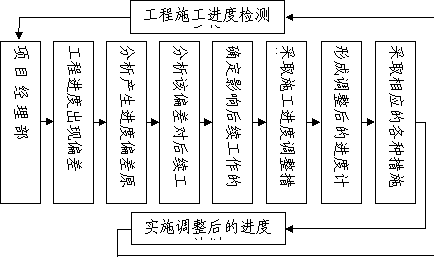 工程施工进度检测
项目经理部
工程进度出现偏差
分析产生进度偏差原
分析该偏差对后续工
确定影响后续工作的
采取施工进度调整措
形成调整后的进度计
采取相应的各种措施
实施调整后的进度